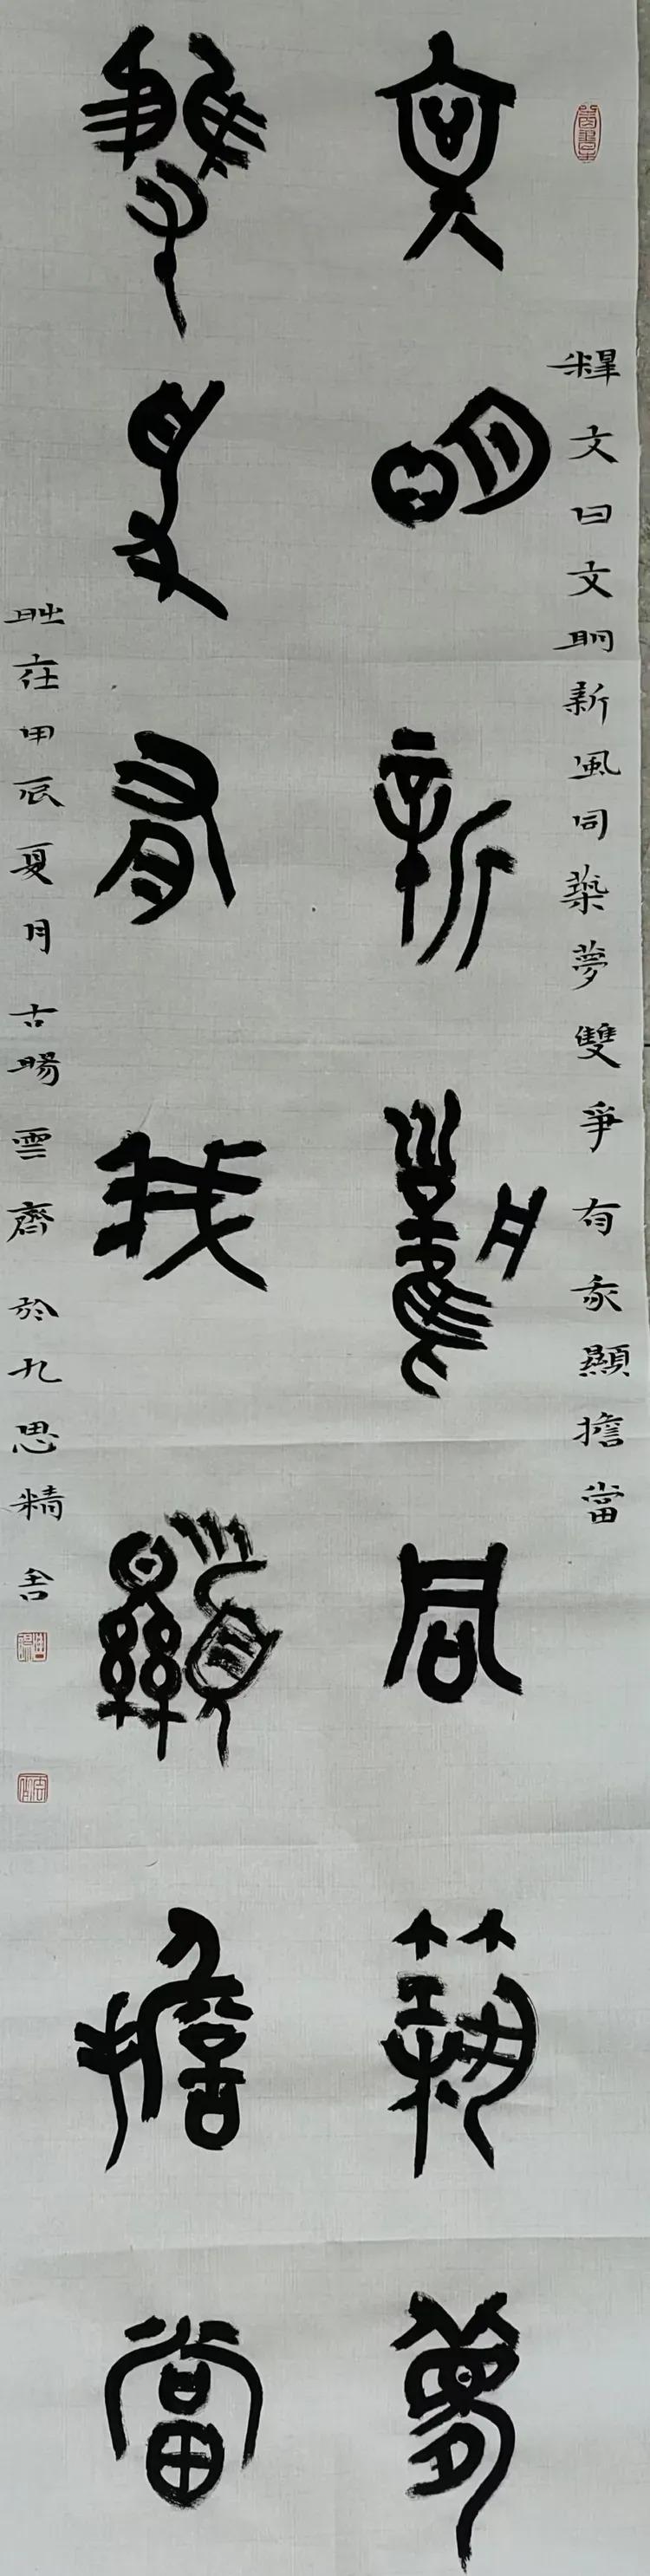 釋文曰文明新風同築夢雙爭有我顯擔當
文明新風同築夢
雙爭有我顯擔當
時在甲辰夏月古暘雲齊於九思精舍